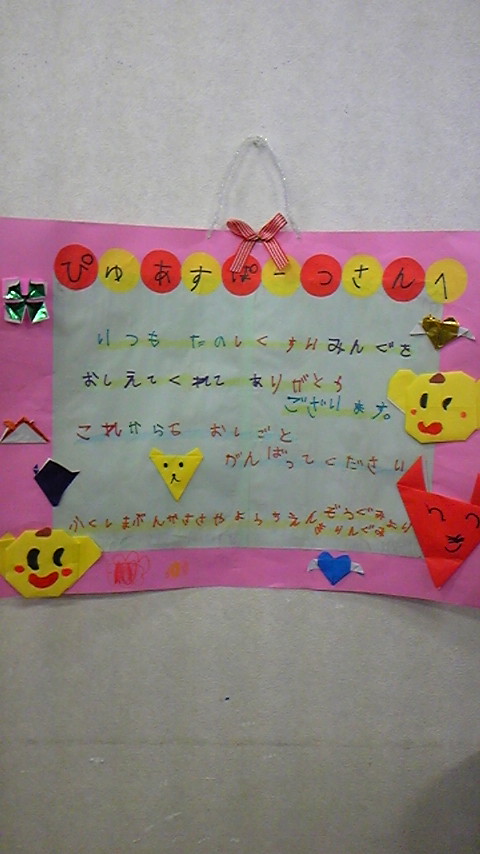 ぴゅあすぽーつさんへ
いつも たのしく すいみんぐを
おしえてくれて ありがとう
ございます。
これからも おしごと
がんばってください
ふくしまぶんかささやようちえん ぞうぐみ
きりんぐみより